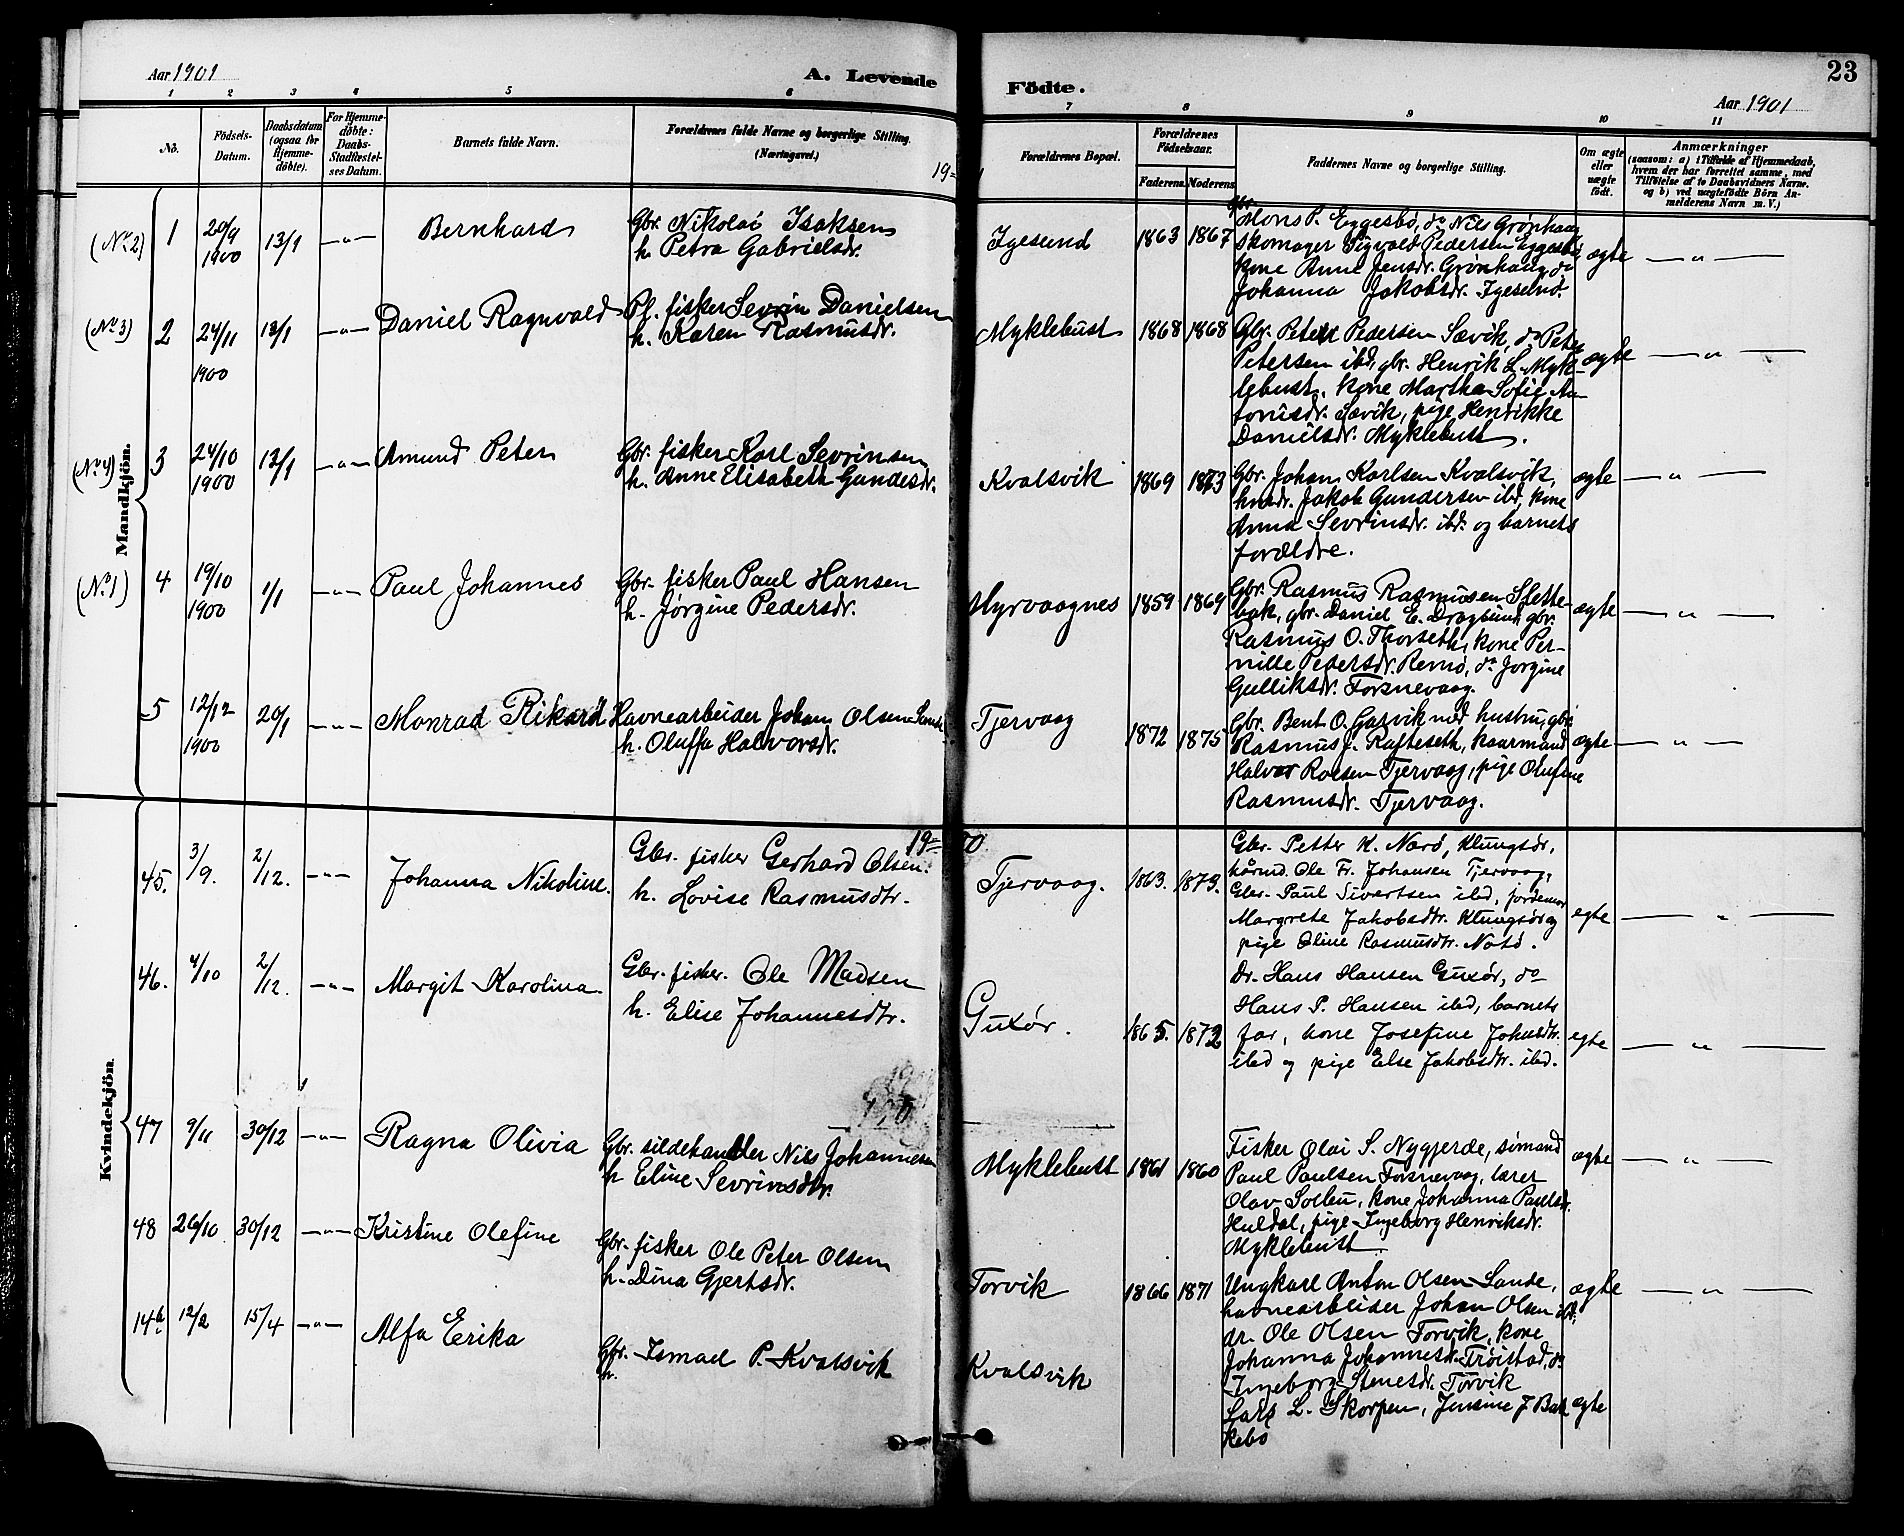 Aar 1901
A. Levende Födte.
23
Aar 1901
1 2 3 4 5 6 7 8 9 10 11
No.
Födsels-Datum.
Daabsdatum (ogsaa for Hjemme-döbte).
For Hjemme-döbte: Daabs-Stadfæstel-ses Datum.
Barnets fulde Navn.
Forældrenes fulde Navne og borgerlige Stilling. (Næringsvei.)
Forældrenes Bopæl.
Forældrenes Födselsaar.
Faderens. Moderens.
Faddernes Navne og borgerlige Stilling.
Om ægte eller uægte födt.
Anmærkninger
(saasom: a) i Tilfælde af Hjemmedaab,
hvem der har forrettet samme, med
Tilföielse af to Daabsvidners Navne,
og b) ved uægtefödte Börn An-
melderens Navn m. V.)
Mandkjön.
(No 2) 1 20/9 1900 13/1 — " — Bernhard
Gbr. Nikolai Isaksen
h. Petra Gabrielsdr.
Igesund 1863 1867
Gbr. Mons P. Eggesbø, do Nils Grønhaug
skomager Sigvald Pedersen Eggesbø,
kone Anne Jensdr. Grønhaug, do
Johanna Jakobsdr. Igesund.
ægte — " —
(No 3) 2 24/11 1900 13/1 — " — Daniel Ragnvald
Pl. fisker Sevrin Danielsen
h. Karen Rasmusdr.
Myklebust 1868 1868
Gbr. Peter Pedersen Sævik, do Peter
Petersen ibd, gbr. Henrik L. Myk-
lebust, kone Martha Sofie An-
tonisdr. Sævik, pige Henrikke
Danielsdr. Myklebust.
ægte — " —
(No 4) 3 24/10 1900 13/1 — " — Amund Peter
Gbr. fisker Karl Sevrinsen
h. Anne Elisabeth Gundesdr.
Kvalsvik 1869 1873
Gbr. Johan Karlsen Kvalsvik,
husdr. Jakob Gundersen ibd, kone
Anna Sevrinsdr. ibd. og barnets
forældre.
ægte — " —
(No 1) 4 19/10 1900 1/1 — " — Paul Johannes
Gbr. fisker Paul Hansen
h. Jørgine Pedersdr.
Myrvaagnes 1859 1869
Gbr. Rasmus Rasmussen Slette-
bak, gbr. Daniel E. Dragsund, gbr.
Rasmus O. Thorseth, kone Per-
nille Pedersdr. Remø, do Jorgine
Gulliksdr. Fosnevaag.
ægte — " —
5 12/12 1900 20/1 — " — Monrad Rikard
Havnearbeider Johan Olsen Sande
h. Oluffa Halvorsdr.
Tjervaag 1872 1875
Gbr. Bent O. Garvik med hustru, gbr.
Rasmus J. Rafteseth, kaarmand
Halvor Roesen Tjervaag, pige Olufine
Rasmusdr. Tjervaag.
ægte — " —
1900
Kvindekjön.
45. 3/9. 2/12. — " — Johanna Nikoline.
Gbr. fisker Gerhard Olsen.
h. Lovise Rasmusdtr.
Tjervaag. 1863. 1873.
Gbr. Petter K. Narø, Klungsør,
kårmd. Ole Fr. Johansen Tjervaag,
Gbr. Paul Sivertsen ibd, jordemor
Margrete Jakobsdtr. Klungsør og
pige Oline Rasmusdtr. Notø.
egte — " —
46. 4/10 2/12. — " — Margit Karolina.
Gbr. fisker. Ole Madsen
h. Elise Johannesdtr.
Guxør. 1865. 1872
Dr. Hans Hansen Guxør, do
Hans P. Hansen ibd, barnets
far, kone Josefine Johnsdtr.
ibd og pige Else Jakobsdtr. ibd.
egte — " —
47 9/11 30/12 — " — Ragna Olivia
Gbr. sildehandler Nils Johannesen
h Eline Sevrinsdtr.
Myklebust 1861 1860
Fisker Olai S. Nygjerde, sømand
Paul Paulsen Fosnevaag, lærer
Olav Solbu, kone Johanna Paulsdr.
Huldal, pige Ingeborg Henriksdr.
Myklebust.
ægte — " —
48 26/10 30/12 — " — Kristine Olefine
Gbr. fisker Ole Peter Olsen
h. Dina Gjertsdr.
Torvik 1866 1871
Ungkarl Anton Olsen Sande,
havnearbeider Johan Olsen ibd.
dr. Ole Olsen Torvik, kone
Johanna Johannesdr. Trøistad, do
Ingeborg Stenesdr. Torvik
ægte — " —
14b 12/2 15/4 — " — Alfa Eerika
Gbr. Ismael P. Kvalsvik
h.
Kvalsvik
Lars L. Skorpen, Jensine J Bak
kebø
ægte